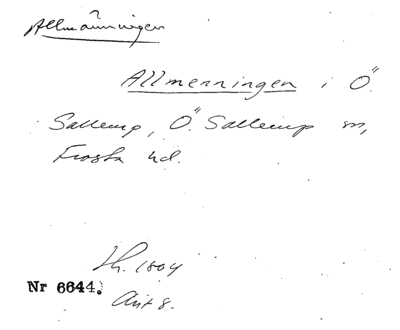 Allmänningen
Allmenningen i Ö.
Sallerup, Ö. Sallerup sn,
Frosta hd.
Lh. 1804
Nr 6644.
Akt 8.